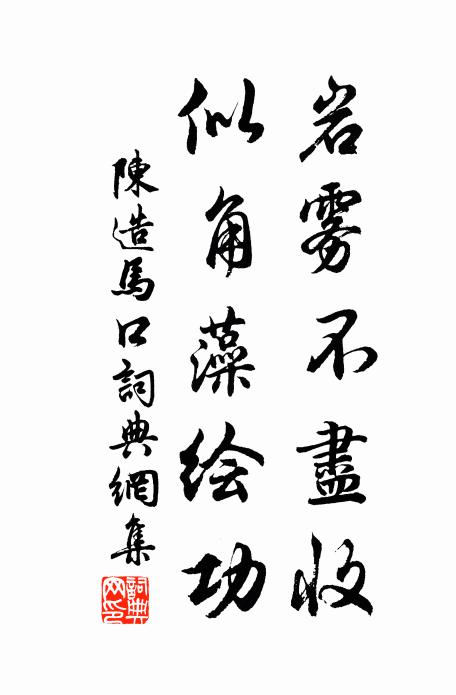 岩雾不盡收
似角藻绘功
陳造馬口詞典網集
詞典网印